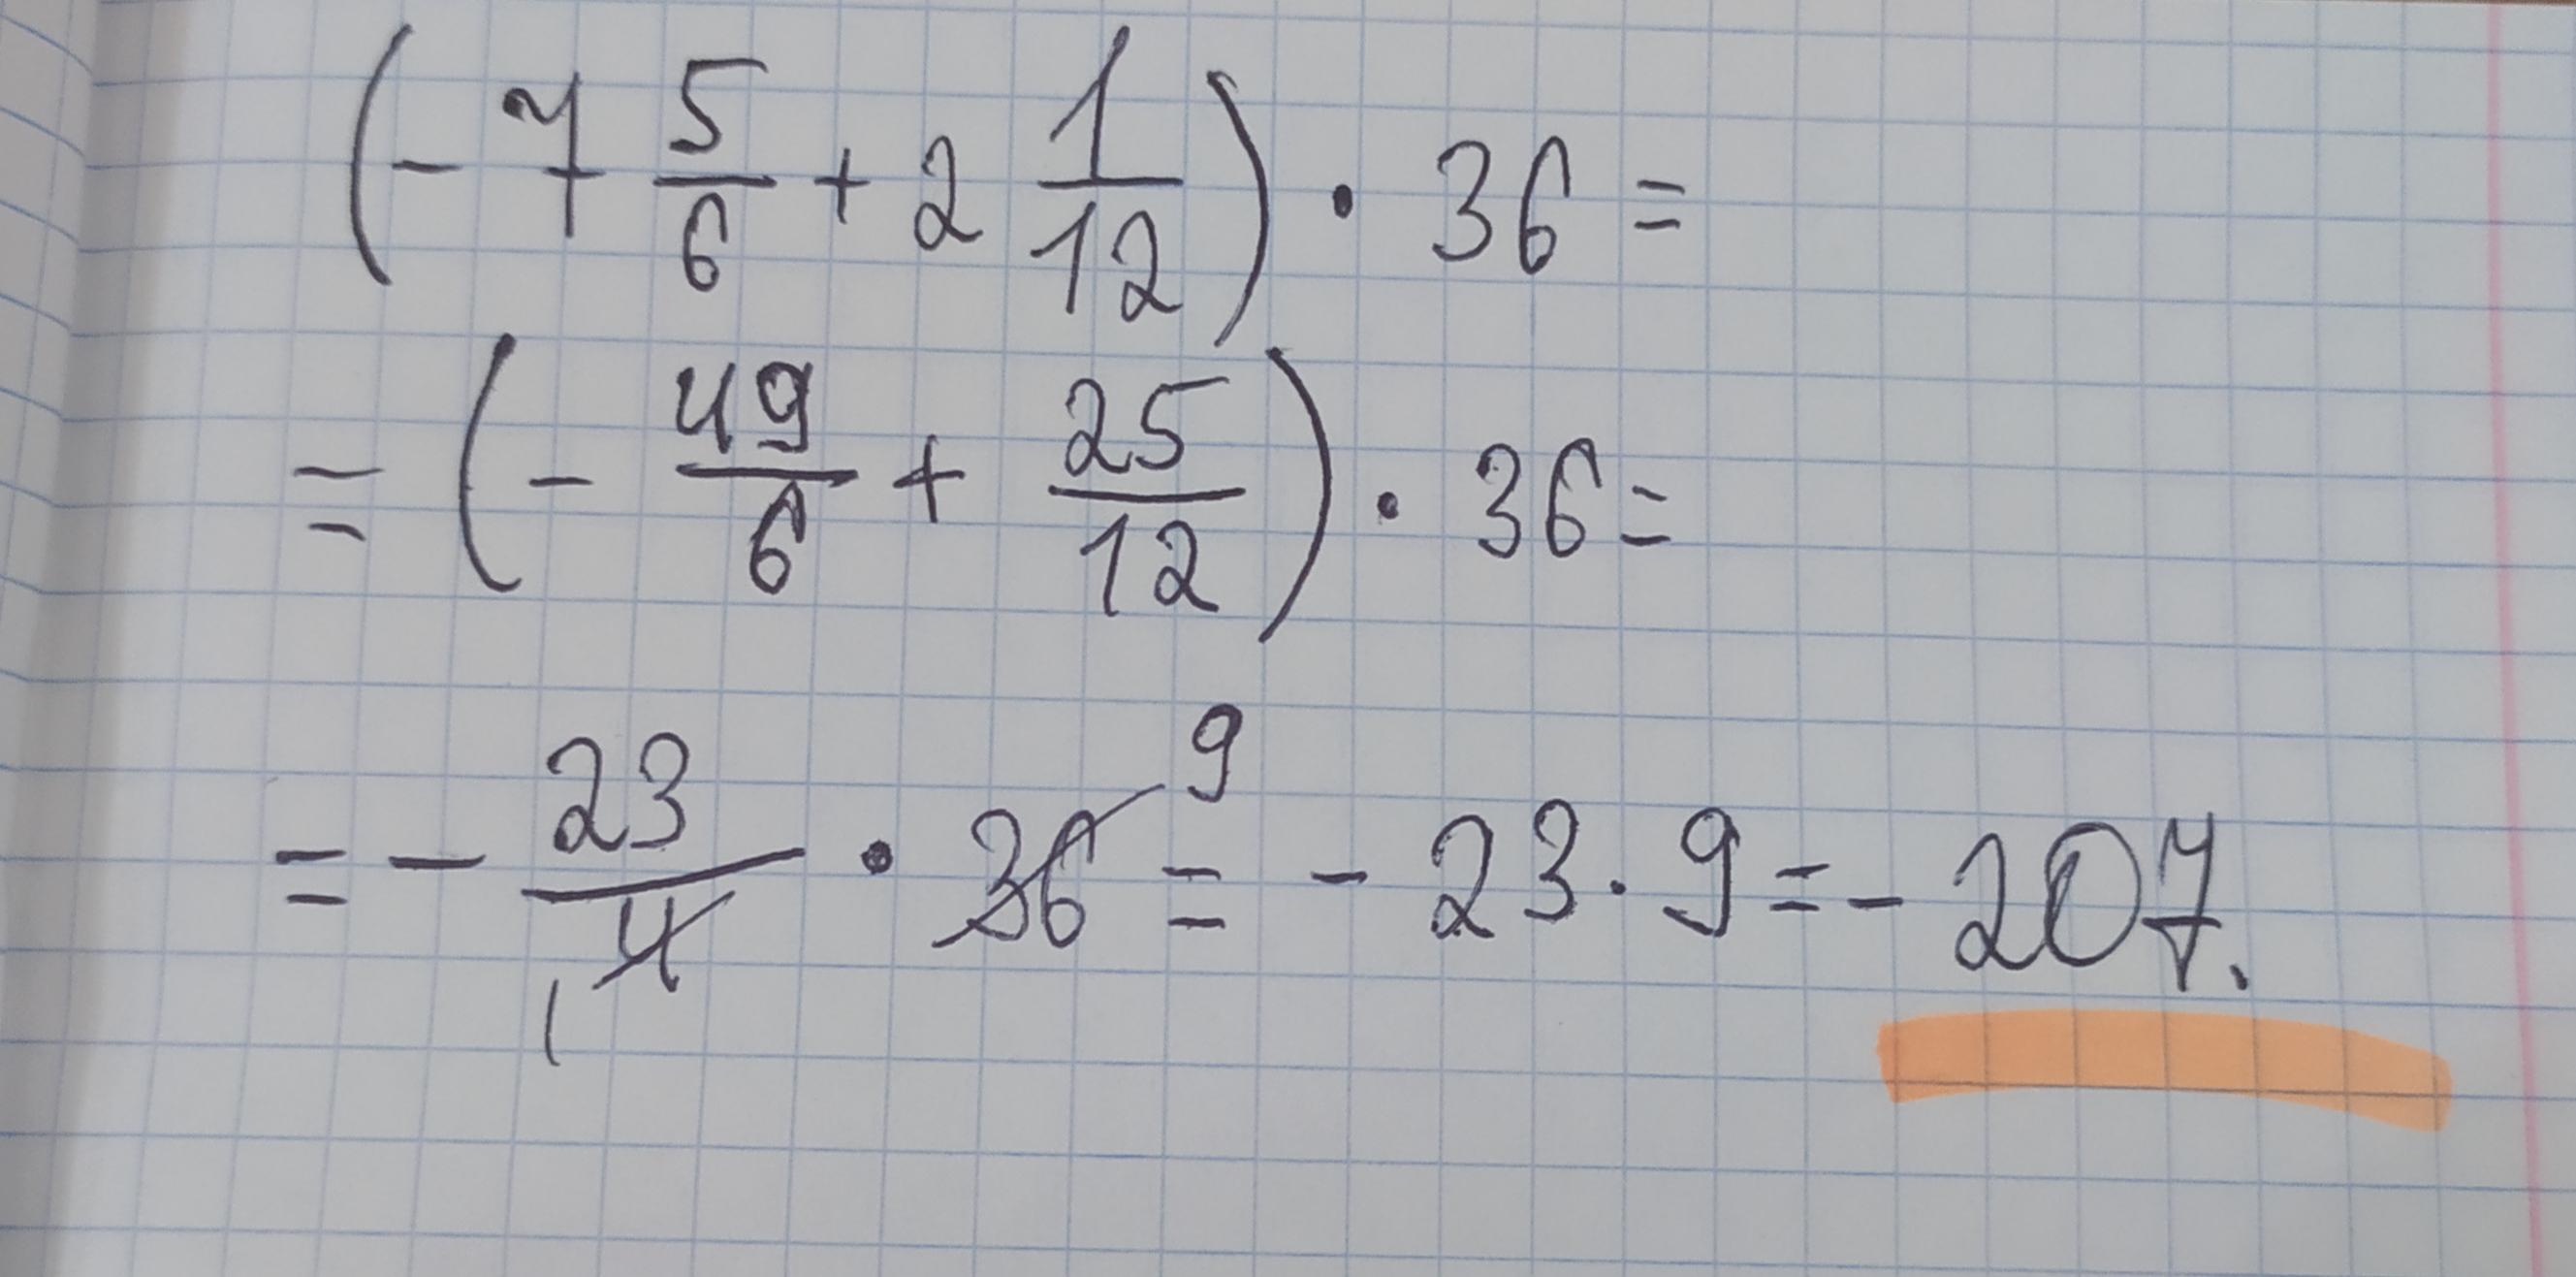 (- 7 5/6 + 2 1/12) · 36 =
= (- 49/6 + 25/12) · 36 =
= - 23/4 1 · 36 9 = - 23 · 9 = - 207.